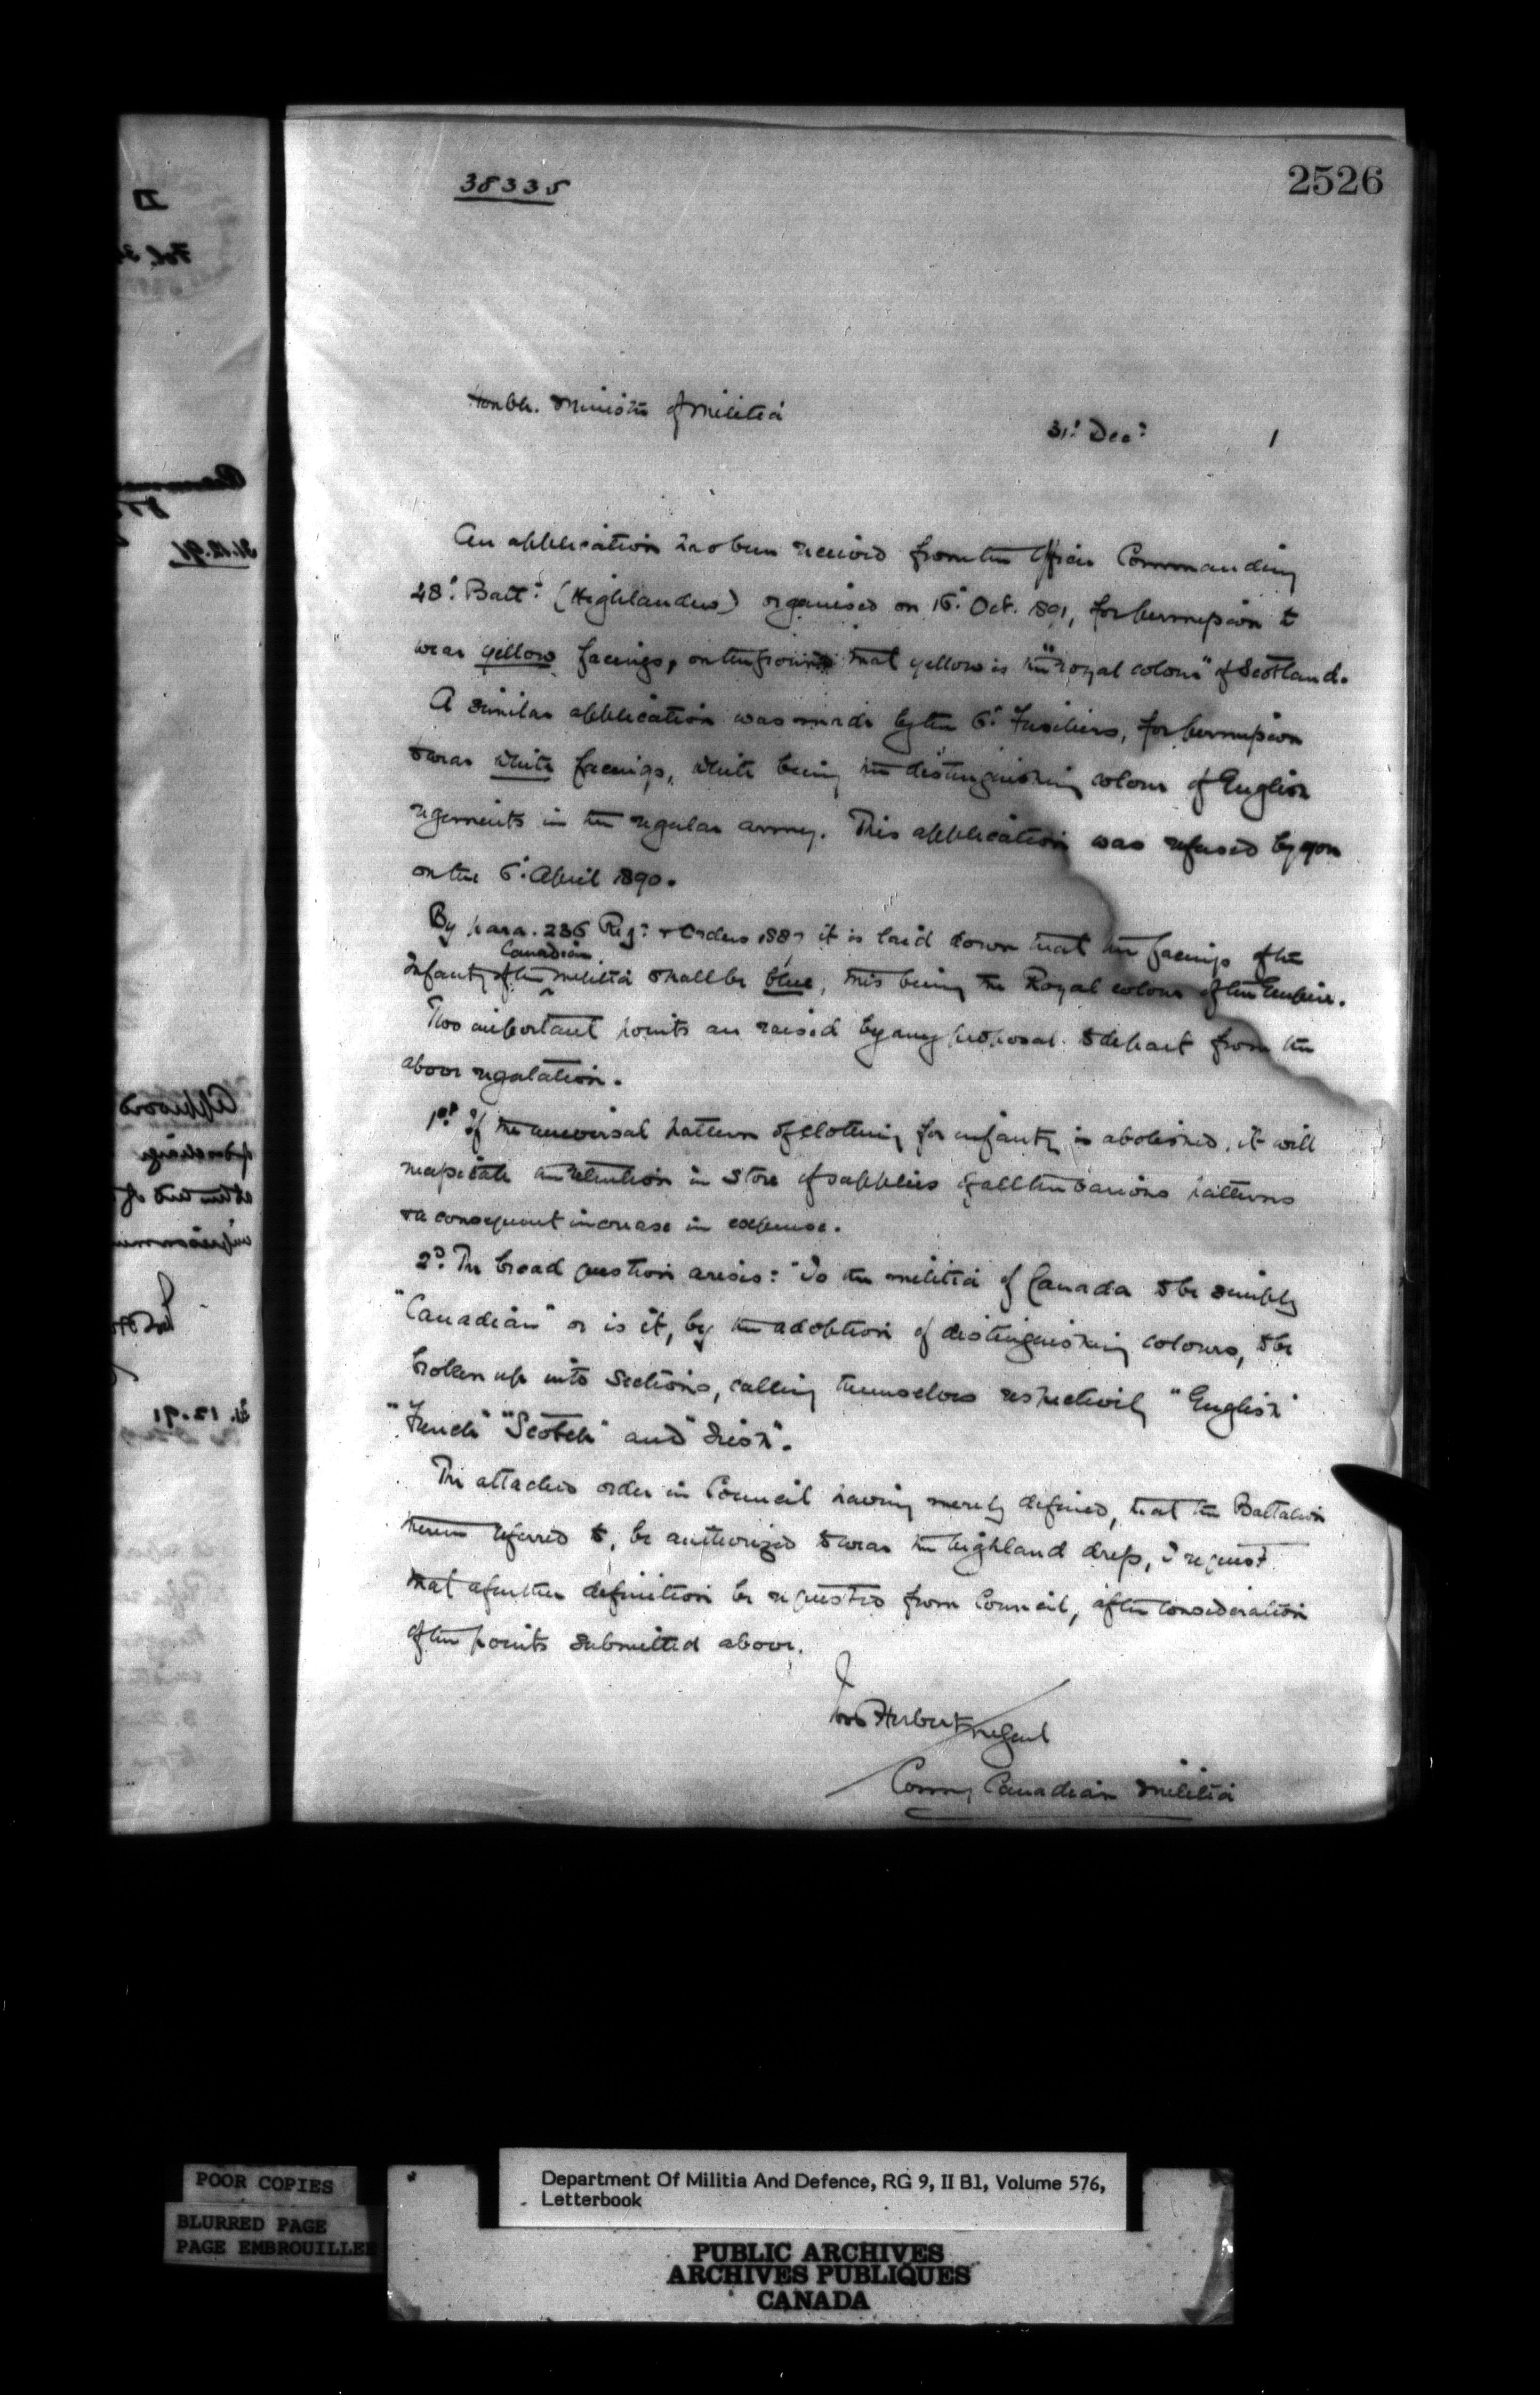 2526
38335
Honble. Minister of Militia
31st Decr 1
An application has been received from the Officer Commanding
48th Battn (Highlanders) organised on 16th Oct. 1891, for permission to
wear yellow facings, on the ground that yellow is the "royal colour" of Scotland.
A similar application was made by the 6th Fusiliers, for permission
to wear white facings, white being the distinguishing colour of English
regiments in the regular army. This application was refused by you
on the 6th April 1890.
By para. 236 Regns & Orders 1887 it is laid down that the facings of the
Canadian
Infantry of the ^ militia shall be blue, this being the Royal colour of the Empire.
Two important points are raised by any proposal to depart from the
above regulation.
1st If the universal pattern of clothing for infantry is abolished, it will
necessitate the retention in store of supplies of all the various patterns
& a consequent increase in expense.
2d. The broad question arises: "Is the militia of Canada to be simply
"Canadian" or is it, by the adoption of distinguishing colours, to be
broken up into sections, calling themselves respectively "English"
"French" "Scotch" and "Irish".
The attached order in Council having merely defined, that the Battalion
therein referred to, be authorized to wear the highland dress, I request
that a further definition be requested from Council, after consideration
of the points submitted above.
Ivor Herbert M Genl
Commg Canadian Militia
31.12.91
31.12.91
POOR COPIES
BLURRED PAGE
PAGE EMBROUILLEE
Department Of Militia And Defence, RG 9, II B1, Volume 576,
Letterbook
PUBLIC ARCHIVES
ARCHIVES PUBLIQUES
CANADA